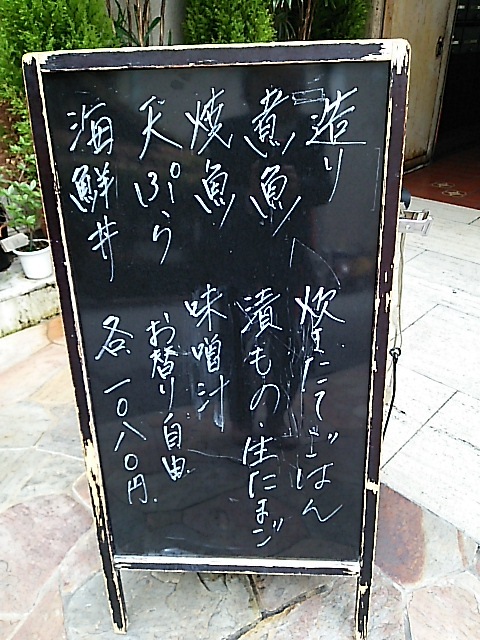 造り
煮魚
焼魚
天ぷら
海鮮丼
炊きたてごはん
漬もの・生たまご
味噌汁
お替り自由
各一〇八〇円